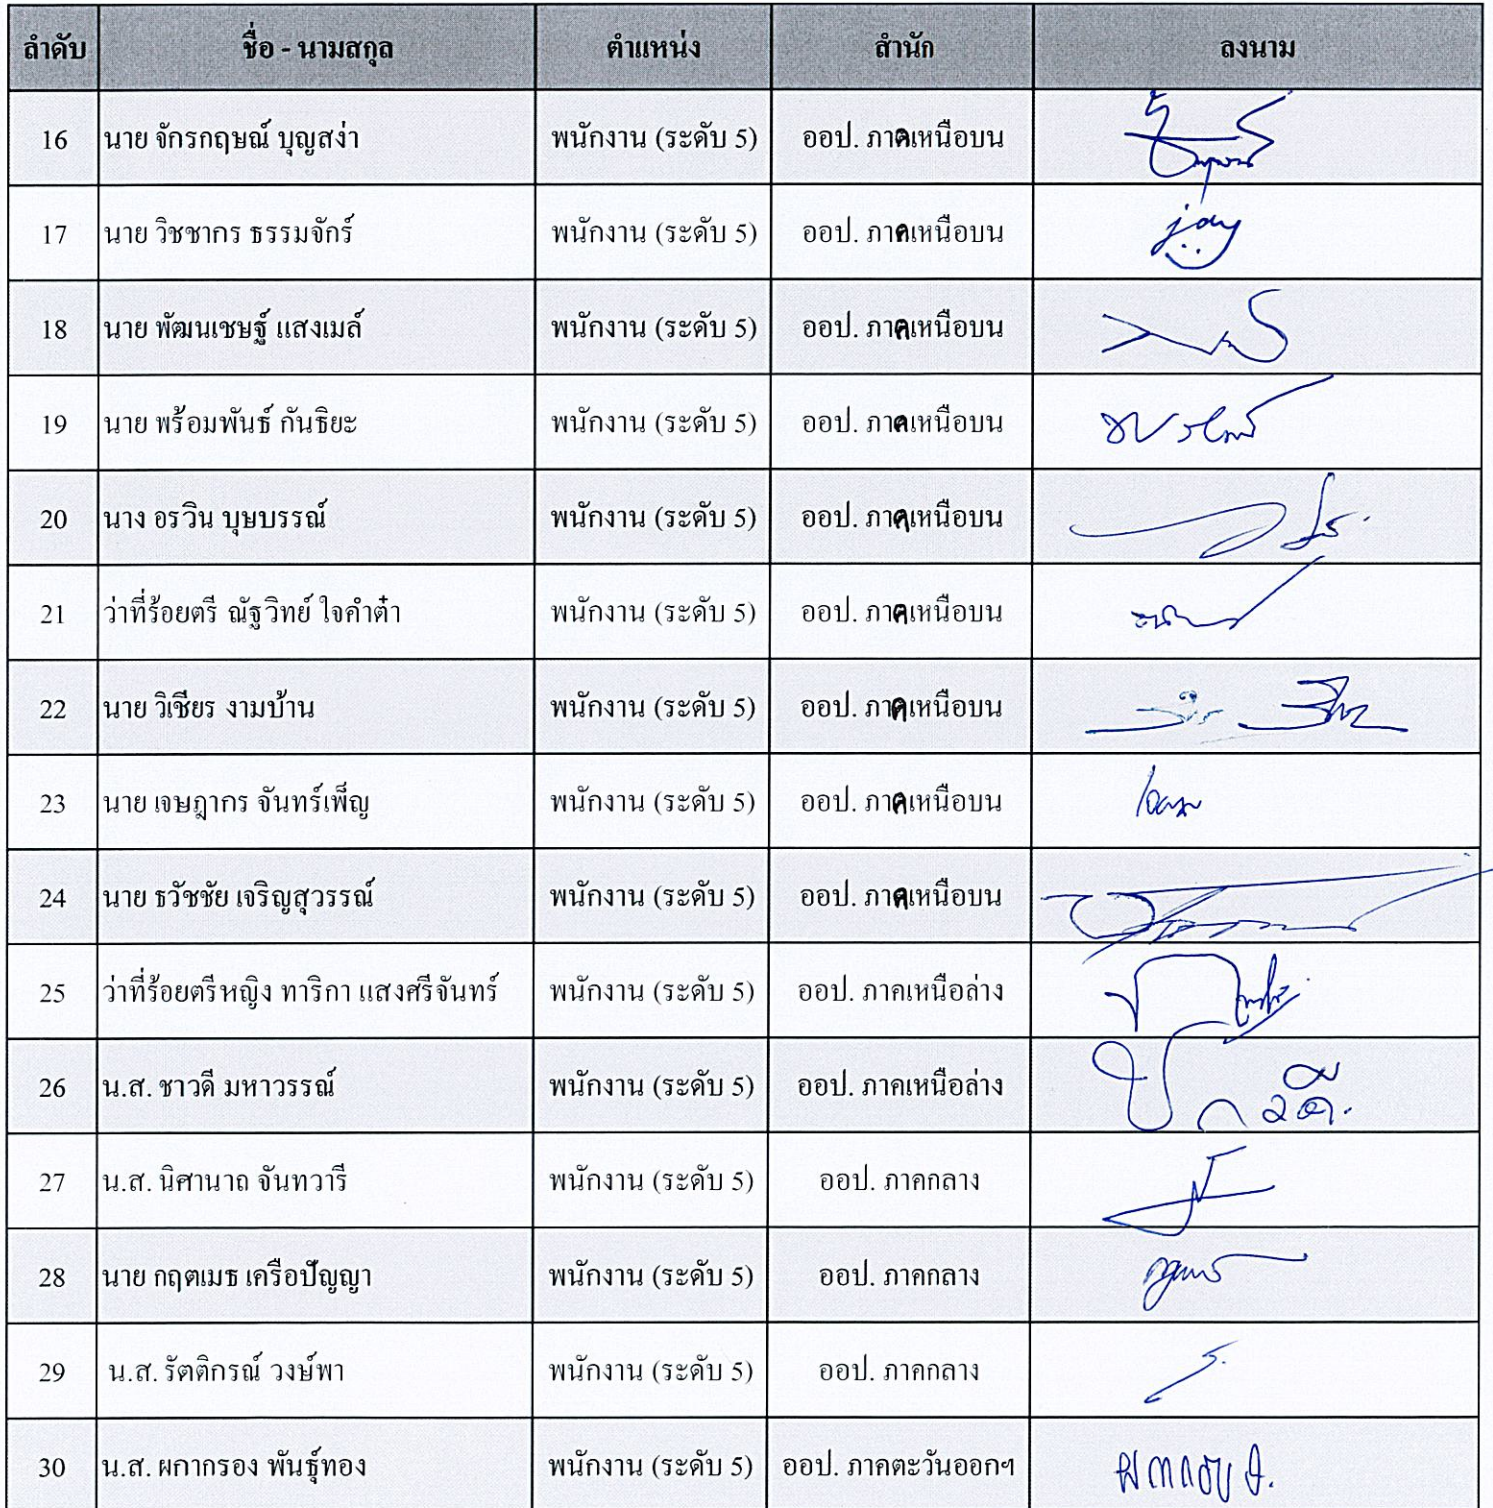 ลำดับ ชื่อ - นามสกุล ตำแหน่ง สำนัก ลงนาม
16 นาย จักรกฤษณ์ บุญสง่า พนักงาน (ระดับ 5) ออป. ภาคเหนือบน
17 นาย วิชชากร ธรรมจักร์ พนักงาน (ระดับ 5) ออป. ภาคเหนือบน joy
18 นาย พัฒนเชษฐ์ แสงเมล์ พนักงาน (ระดับ 5) ออป. ภาคเหนือบน
19 นาย พร้อมพันธ์ กันธิยะ พนักงาน (ระดับ 5) ออป. ภาคเหนือบน
20 นาง อรวิน บุษบรรณ์ พนักงาน (ระดับ 5) ออป. ภาคเหนือบน
21 ว่าที่ร้อยตรี ณัฐวิทย์ ใจคำต๋า พนักงาน (ระดับ 5) ออป. ภาคเหนือบน
22 นาย วิเชียร งามบ้าน พนักงาน (ระดับ 5) ออป. ภาคเหนือบน
23 นาย เจษฎากร จันทร์เพ็ญ พนักงาน (ระดับ 5) ออป. ภาคเหนือบน
24 นาย ธวัชชัย เจริญสุวรรณ์ พนักงาน (ระดับ 5) ออป. ภาคเหนือบน
25 ว่าที่ร้อยตรีหญิง ทาริกา แสงศรีจันทร์ พนักงาน (ระดับ 5) ออป. ภาคเหนือล่าง
26 น.ส. ชาวดี มหาวรรณ์ พนักงาน (ระดับ 5) ออป. ภาคเหนือล่าง
27 น.ส. นิศานาถ จันทวารี พนักงาน (ระดับ 5) ออป. ภาคกลาง
28 นาย กฤตเมธ เครือปัญญา พนักงาน (ระดับ 5) ออป. ภาคกลาง
29 น.ส. รัตติกรณ์ วงษ์พา พนักงาน (ระดับ 5) ออป. ภาคกลาง
30 น.ส. ผกากรอง พันธุ์ทอง พนักงาน (ระดับ 5) ออป. ภาคตะวันออกฯ